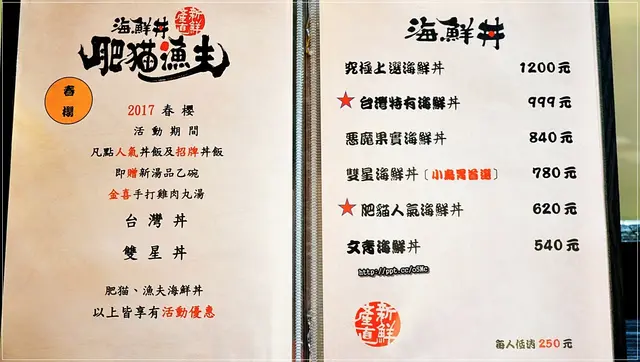 海鮮丼
新鮮
產直
肥猫漁夫
春櫻
2017 春櫻
活動期間
凡點人氣丼飯及招牌丼飯
即贈新湯品乙碗
金喜手打雞肉丸湯
台灣丼
雙星丼
肥猫、漁夫海鮮丼
以上皆享有活動優惠
海鮮丼
究極上選海鮮丼 1200元
台灣特有海鮮丼 999元
惡魔果實海鮮丼 840元
雙星海鮮丼(小鳥胃首選) 780元
肥貓人氣海鮮丼 620元
文青海鮮丼 540元
新鮮
產直
每人低消 250元